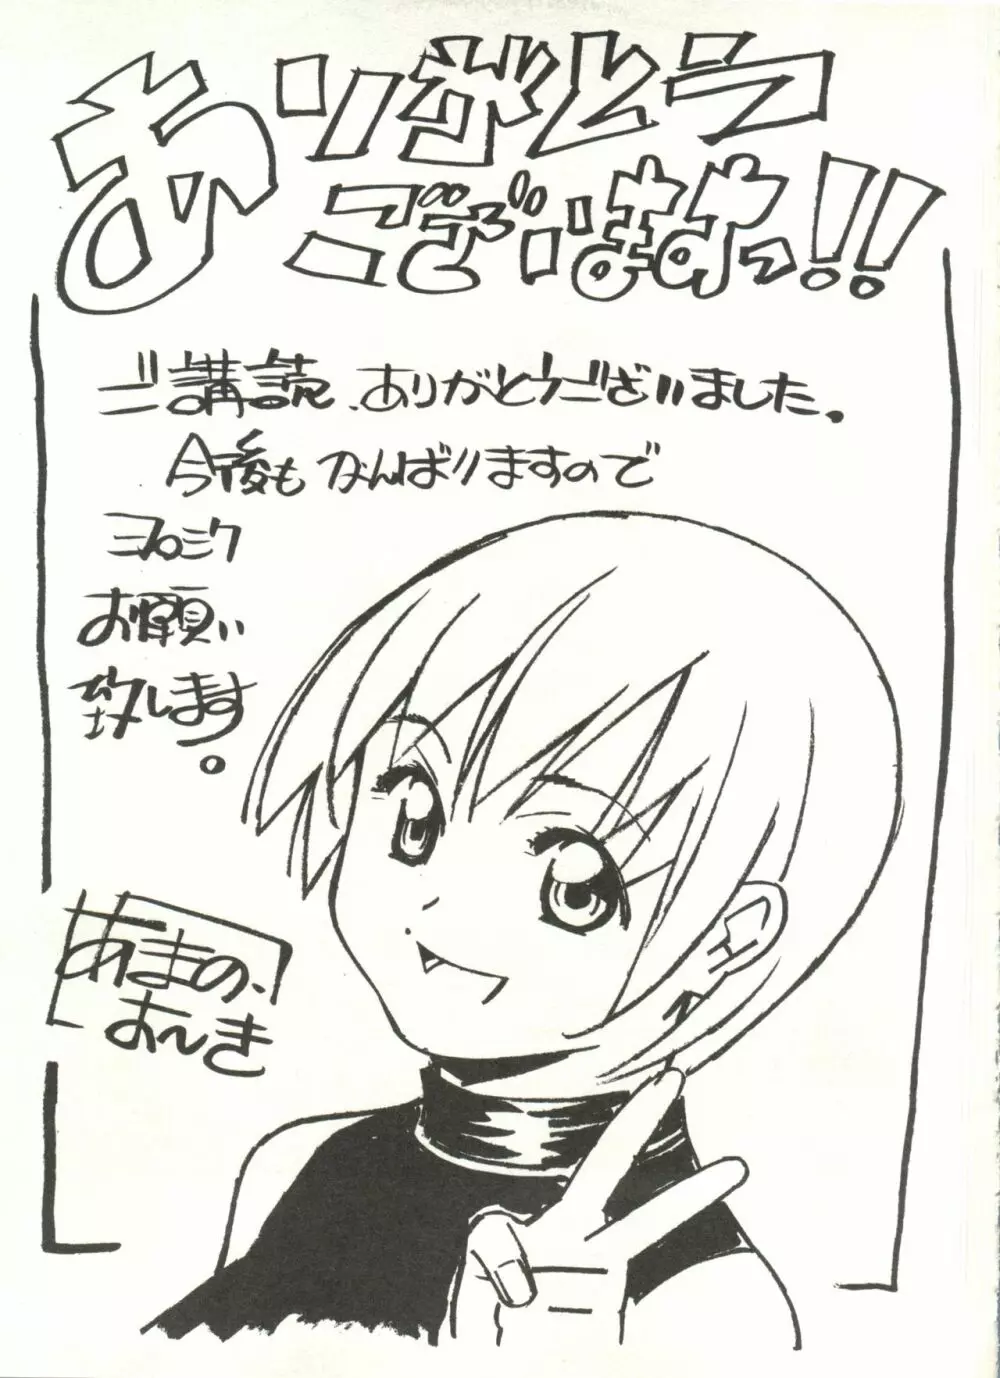 ありがとう
ございまあっ!!
ご講読、ありがとうございました。
今後もがんばりますので
ヨロシク
お願い
致します。
あまの、
よ〜き